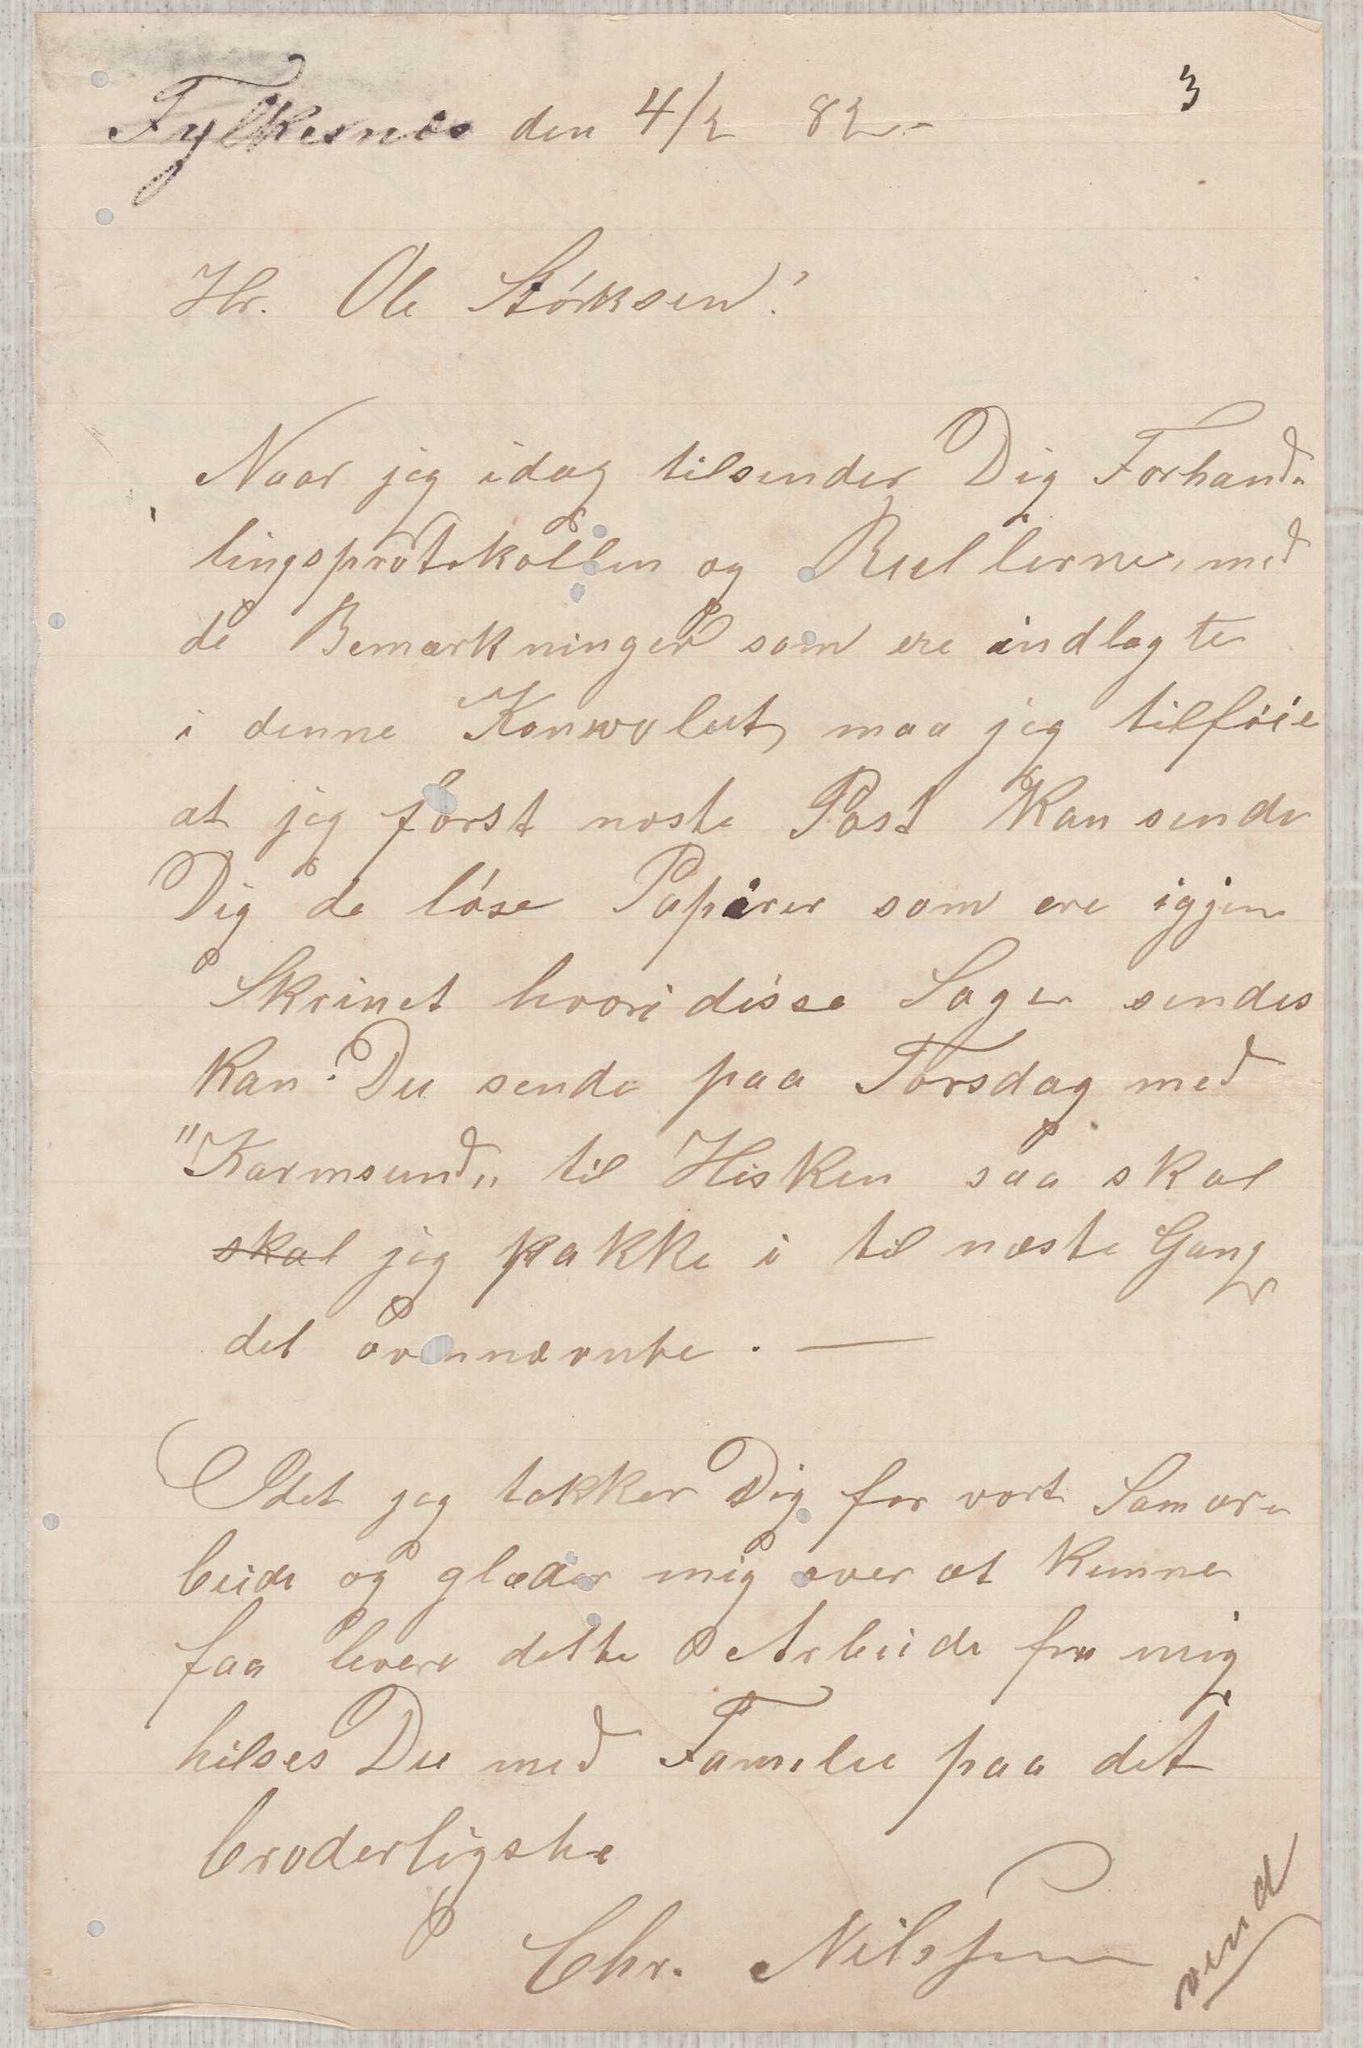 3
Fylkesnæs den 4/2 82.
Hr. Ole Störksen!
Naar jeg idag tilsender Dig Forhand-
lingsprotokollen og Rullerne, med
de Bemærkninger som ere indlagte
i denne Konvolut, maa jeg tilföie
at jeg först næste Post Kan sende
Dig de löse Papirer som ere igjen
Skrinet hvori disse Sager sendes
Kan Du sende paa Torsdag med
"Karmsund" til Hisken saa skal
skal jeg pakke i til næste Gang
det ovennævnte. —
Idet jeg takker Dig for vort Samar-
beide og glæder mig over at Kunne
faa levere dette Arbeide fra mig
hilses Du med Familie paa det
broderligste
Chr. Nilssen
vend